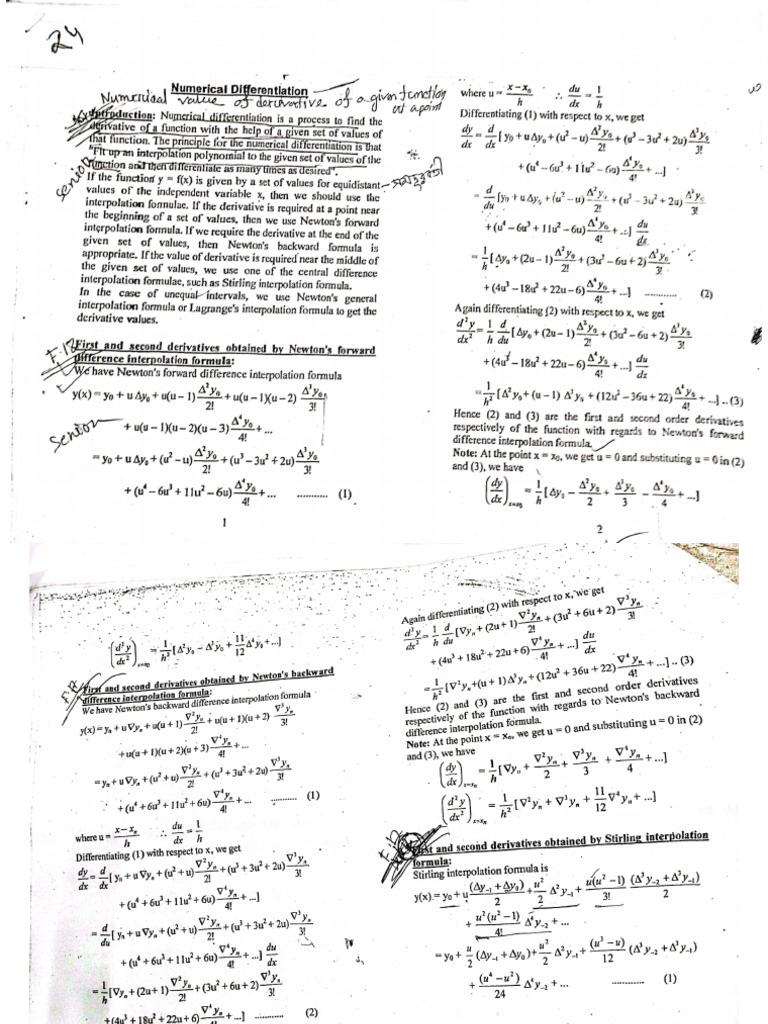 24
Numerical Differentiation
Numerical value of derivative of a given function at a point
Introduction: Numerical differentiation is a process to find the
derivative of a function with the help of a given set of values of
that function. The principle for the numerical differentiation is that
"Fit up an interpolation polynomial to the given set of values of the
function and then differentiate as many times as desired".
If the function y = f(x) is given by a set of values for equidistant
values of the independent variable x, then we should use the
interpolation formulae. If the derivative is required at a point near
the beginning of a set of values, then we use Newton's forward
interpolation formula. If we require the derivative at the end of the
given set of values, then Newton's backward formula is
appropriate. If the value of derivative is required near the middle of
the given set of values, we use one of the central difference
interpolation formulae, such as Stirling interpolation formula.
In the case of unequal intervals, we use Newton's general
interpolation formula or Lagrange's interpolation formula to get the
derivative values.
Senior
F.17
First and second derivatives obtained by Newton's forward
difference interpolation formula:
We have Newton's forward difference interpolation formula
y(x) = y₀ + u Δy₀ + u(u − 1) Δ²y₀/2! + u(u − 1)(u − 2) Δ³y₀/3!
Senior
+ u(u − 1)(u − 2)(u − 3) Δ⁴y₀/4! + ...
= y₀ + u Δy₀ + (u² − u) Δ²y₀/2! + (u³ − 3u² + 2u) Δ³y₀/3!
+ (u⁴ − 6u³ + 11u² − 6u) Δ⁴y₀/4! + ... ............ (1)
1
where u = (x − x₀)/h ∴ du/dx = 1/h
Differentiating (1) with respect to x, we get
dy/dx = d/dx [ y₀ + u Δy₀ + (u² − u) Δ²y₀/2! + (u³ − 3u² + 2u) Δ³y₀/3!
+ (u⁴ − 6u³ + 11u² − 6u) Δ⁴y₀/4! + ...]
= d/du [y₀ + u Δy₀ + (u² − u) Δ²y₀/2! + (u³ − 3u² + 2u) Δ³y₀/3!
+ (u⁴ − 6u³ + 11u² − 6u) Δ⁴y₀/4! + ...] du/dx
= 1/h [Δy₀ + (2u − 1) Δ²y₀/2! + (3u² − 6u + 2) Δ³y₀/3!
+ (4u³ − 18u² + 22u − 6) Δ⁴y₀/4! + ...] ............ (2)
Again differentiating (2) with respect to x, we get
d²y/dx² = 1/h d/du [Δy₀ + (2u − 1) Δ²y₀/2! + (3u² − 6u + 2) Δ³y₀/3!
+ (4u³ − 18u² + 22u − 6) Δ⁴y₀/4! + ...] du/dx
= 1/h² [Δ²y₀ + (u − 1) Δ³y₀ + (12u² − 36u + 22) Δ⁴y₀/4! + ...] .. (3)
Hence (2) and (3) are the first and second order derivatives
respectively of the function with regards to Newton's forward
difference interpolation formula.
Note: At the point x = x₀, we get u = 0 and substituting u = 0 in (2)
and (3), we have
(dy/dx)x=x₀ = 1/h [Δy₀ − Δ²y₀/2 + Δ³y₀/3 − Δ⁴y₀/4 + ...]
2
(d²y/dx²)x=x₀ = 1/h² [Δ²y₀ − Δ³y₀ + 11/12 Δ⁴y₀ + ...]
F.17
First and second derivatives obtained by Newton's backward
difference interpolation formula:
We have Newton's backward difference interpolation formula
y(x) = yₙ + u∇yₙ + u(u + 1) ∇²yₙ/2! + u(u + 1)(u + 2) ∇³yₙ/3!
+ u(u + 1)(u + 2)(u + 3) ∇⁴yₙ/4! + ...
= yₙ + u∇yₙ + (u² + u) ∇²yₙ/2! + (u³ + 3u² + 2u) ∇³yₙ/3!
+ (u⁴ + 6u³ + 11u² + 6u) ∇⁴yₙ/4! + ... ............ (1)
where u = (x − xₙ)/h ∴ du/dx = 1/h
Differentiating (1) with respect to x, we get
dy/dx = d/dx [ yₙ + u∇yₙ + (u² + u) ∇²yₙ/2! + (u³ + 3u² + 2u) ∇³yₙ/3!
+ (u⁴ + 6u³ + 11u² + 6u) ∇⁴yₙ/4! + ...]
= d/du [ yₙ + u∇yₙ + (u² + u) ∇²yₙ/2! + (u³ + 3u² + 2u) ∇³yₙ/3!
+ (u⁴ + 6u³ + 11u² + 6u) ∇⁴yₙ/4! + ...] du/dx
= 1/h [∇yₙ + (2u + 1) ∇²yₙ/2! + (3u² + 6u + 2) ∇³yₙ/3!
+ (4u³ + 18u² + 22u + 6) ∇⁴yₙ/4! + ...] ............ (2)
Again differentiating (2) with respect to x, we get
d²y/dx² = 1/h d/du [∇yₙ + (2u + 1) ∇²yₙ/2! + (3u² + 6u + 2) ∇³yₙ/3!
+ (4u³ + 18u² + 22u + 6) ∇⁴yₙ/4! + ...] du/dx
= 1/h² [∇²yₙ + (u + 1) Δ³yₙ + (12u² + 36u + 22) ∇⁴yₙ/4! + ...] .. (3)
Hence (2) and (3) are the first and second order derivatives
respectively of the function with regards to Newton's backward
difference interpolation formula.
Note: At the point x = xₙ, we get u = 0 and substituting u = 0 in (2)
and (3), we have
(dy/dx)x=xₙ = 1/h [∇yₙ + ∇²yₙ/2 + ∇³yₙ/3 + ∇⁴yₙ/4 + ...]
(d²y/dx²)x=xₙ = 1/h² [∇²yₙ + ∇³yₙ + 11/12 ∇⁴yₙ + ...]
First and second derivatives obtained by Stirling interpolation
formula:
Stirling interpolation formula is
y(x) = y₀ + u (Δy₋₁ + Δy₀)/2 + u²/2 Δ²y₋₁ + u(u² − 1)/3! (Δ³y₋₂ + Δ³y₋₁)/2
+ u²(u² − 1)/4! Δ⁴y₋₂ + ...
= y₀ + u/2 (Δy₋₁ + Δy₀) + u²/2 Δ²y₋₁ + (u³ − u)/12 (Δ³y₋₂ + Δ³y₋₁)
+ (u⁴ − u²)/24 Δ⁴y₋₂ + ... ............ (1)